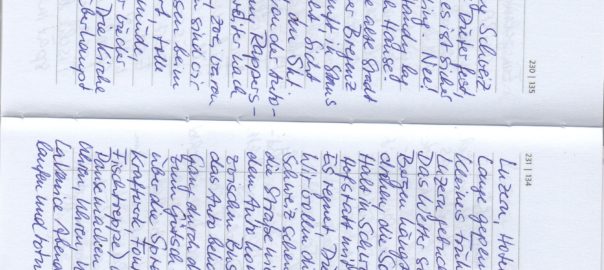 230 | 135
ny Schweiz
Dieter fest,
es ist sicher
ling. Nee!
Handy lag
h Hause.
e alte Stadt
er Bregenz
nft, in Staus
ht. Sicht
, den Skt.
von der Auto-
ny Rappers-
weiter nach
, zoo, waren
n sind wir
ssen beim
rt, tolle
müde,
r wieder
Die Kirche
überhaupt
231 | 134
Luzern, Hote
Lange gepen
Kleines Früh
Luzern gebuch
Das Wetter s
Bergen hängt
drohen, die So
Halt in Schw
Hofstatt mit
Es regnet, Di
Wir wollen di
Schweiz schen
die Straße nic
dem Auto kom
zwischen Bus
das Auto beha
Gang durch d
zum Gütsch
über die Spre
Kraftwerk, tou
Fischtreppe) u
Pause machen
Uhren, Uhren, U
La Venice Abend
laufen und totm